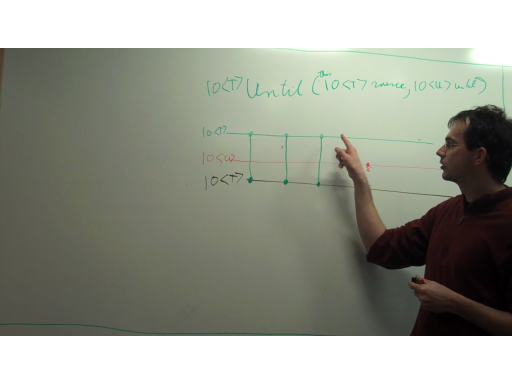 IO<T> Until (this IO<T> source, IO<U> until)
IO<T>
IO<U>
IO<T>